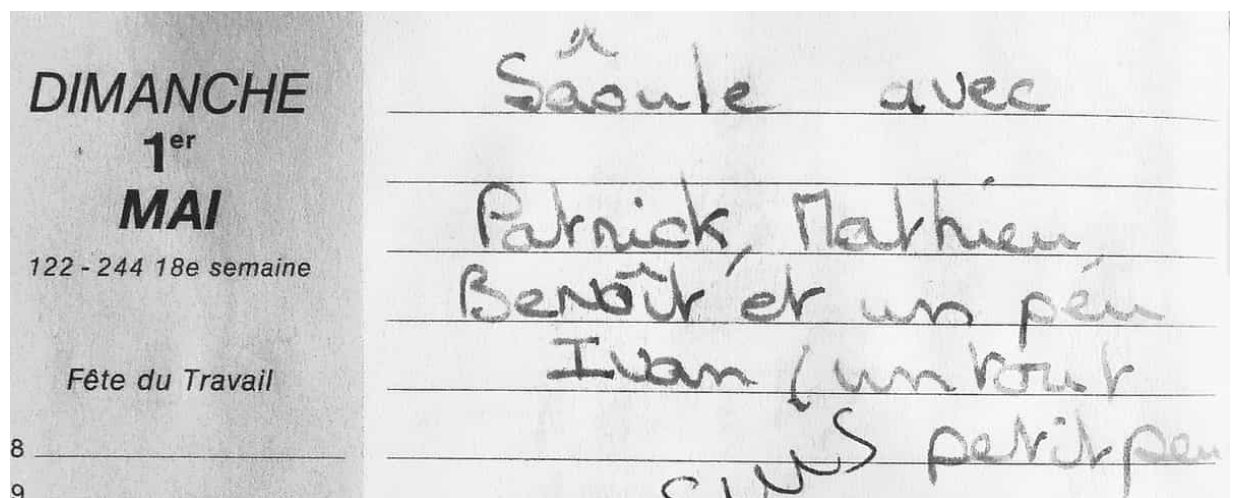 DIMANCHE
1er
MAI
122 - 244 18e semaine
Fête du Travail
8
9
Sâoule avec
Patrick, Mathieu,
Benoît et un peu
Ivan (un tout
petit peu